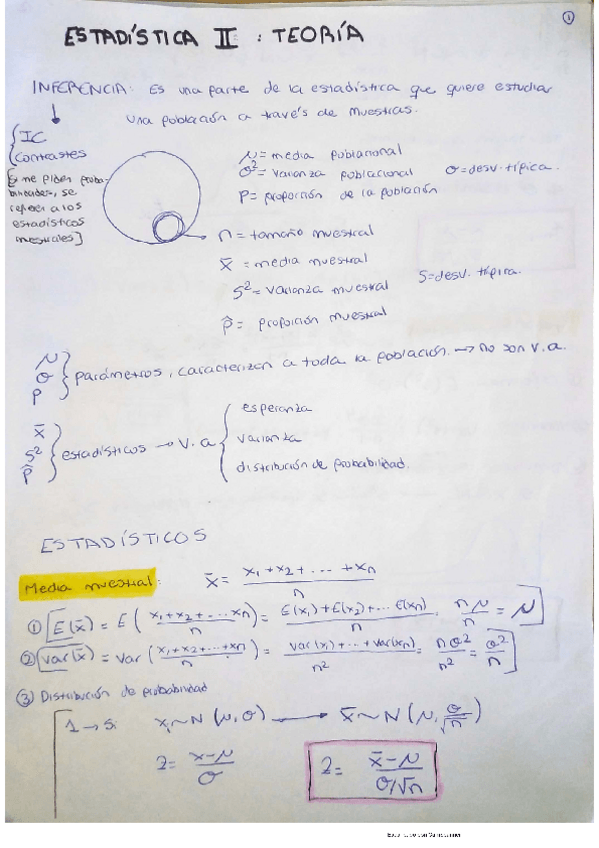 1
ESTADÍSTICA II : TEORÍA
INFERENCIA: Es una parte de la estadística que quiere estudiar
una población a través de muestras.
{IC
Contrastes
me piden proba-
bilidades, se
refieren a los
estadísticos
muestrales]
μ = media poblacional
σ² = varianza poblacional σ = desv. típica.
P = proporción de la población
n = tamaño muestral
x̄ = media muestral
S² = varianza muestral S = desv. típica.
p̂ = proporción muestral
μ
σ
P
} parámetros, caracterizan a toda la población. → no son v.a.
x̄
S²
p̂
} estadísticos → v.a {
esperanza
varianza
distribución de probabilidad.
ESTADÍSTICOS
Media muestral: x̄ = (x₁+x₂+...+xn)/n
① E(x̄) = E((x₁+x₂+...xn)/n) = (E(x₁)+E(x₂)+...E(xn))/n = nμ/n = μ
② Var(x̄) = Var((x₁+x₂+...+xn)/n) = (Var(x₁)+...+Var(xn))/n² = nσ²/n² = σ²/n
③ Distribución de probabilidad
1 → Si xᵢ ~ N(μ,σ) → x̄ ~ N(μ, σ/√n)
Z = (x-μ)/σ Z = (x̄-μ)/(σ/√n)